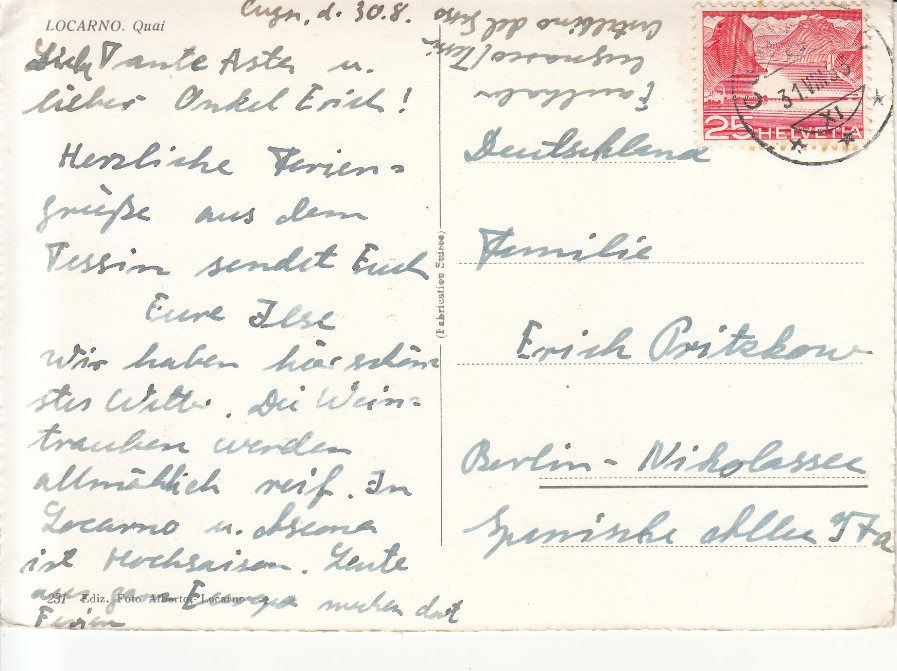 LOCARNO. Quai
d. 30.8.
Liebe Tante Asta u.
lieber Onkel Erich!
Herzliche Ferien=
grüße aus dem
Tessin sendet Euch
Eure Ilse
Wir haben hier schön=
stes Wetter. Die Wein=
trauben werden
allmählich reif. In
Locarno u. Ascona
ist Hochsaison. Leute
aus ganz Europa machen dort
Ferien
231 Ediz. Foto Alberto, Locarno
(Fabrication Suisse)
25 HELVETIA
31.VIII.5
XI
Deutschland
Familie
Erich Pritzkow
Berlin-Nikolassee
Spanische Allee